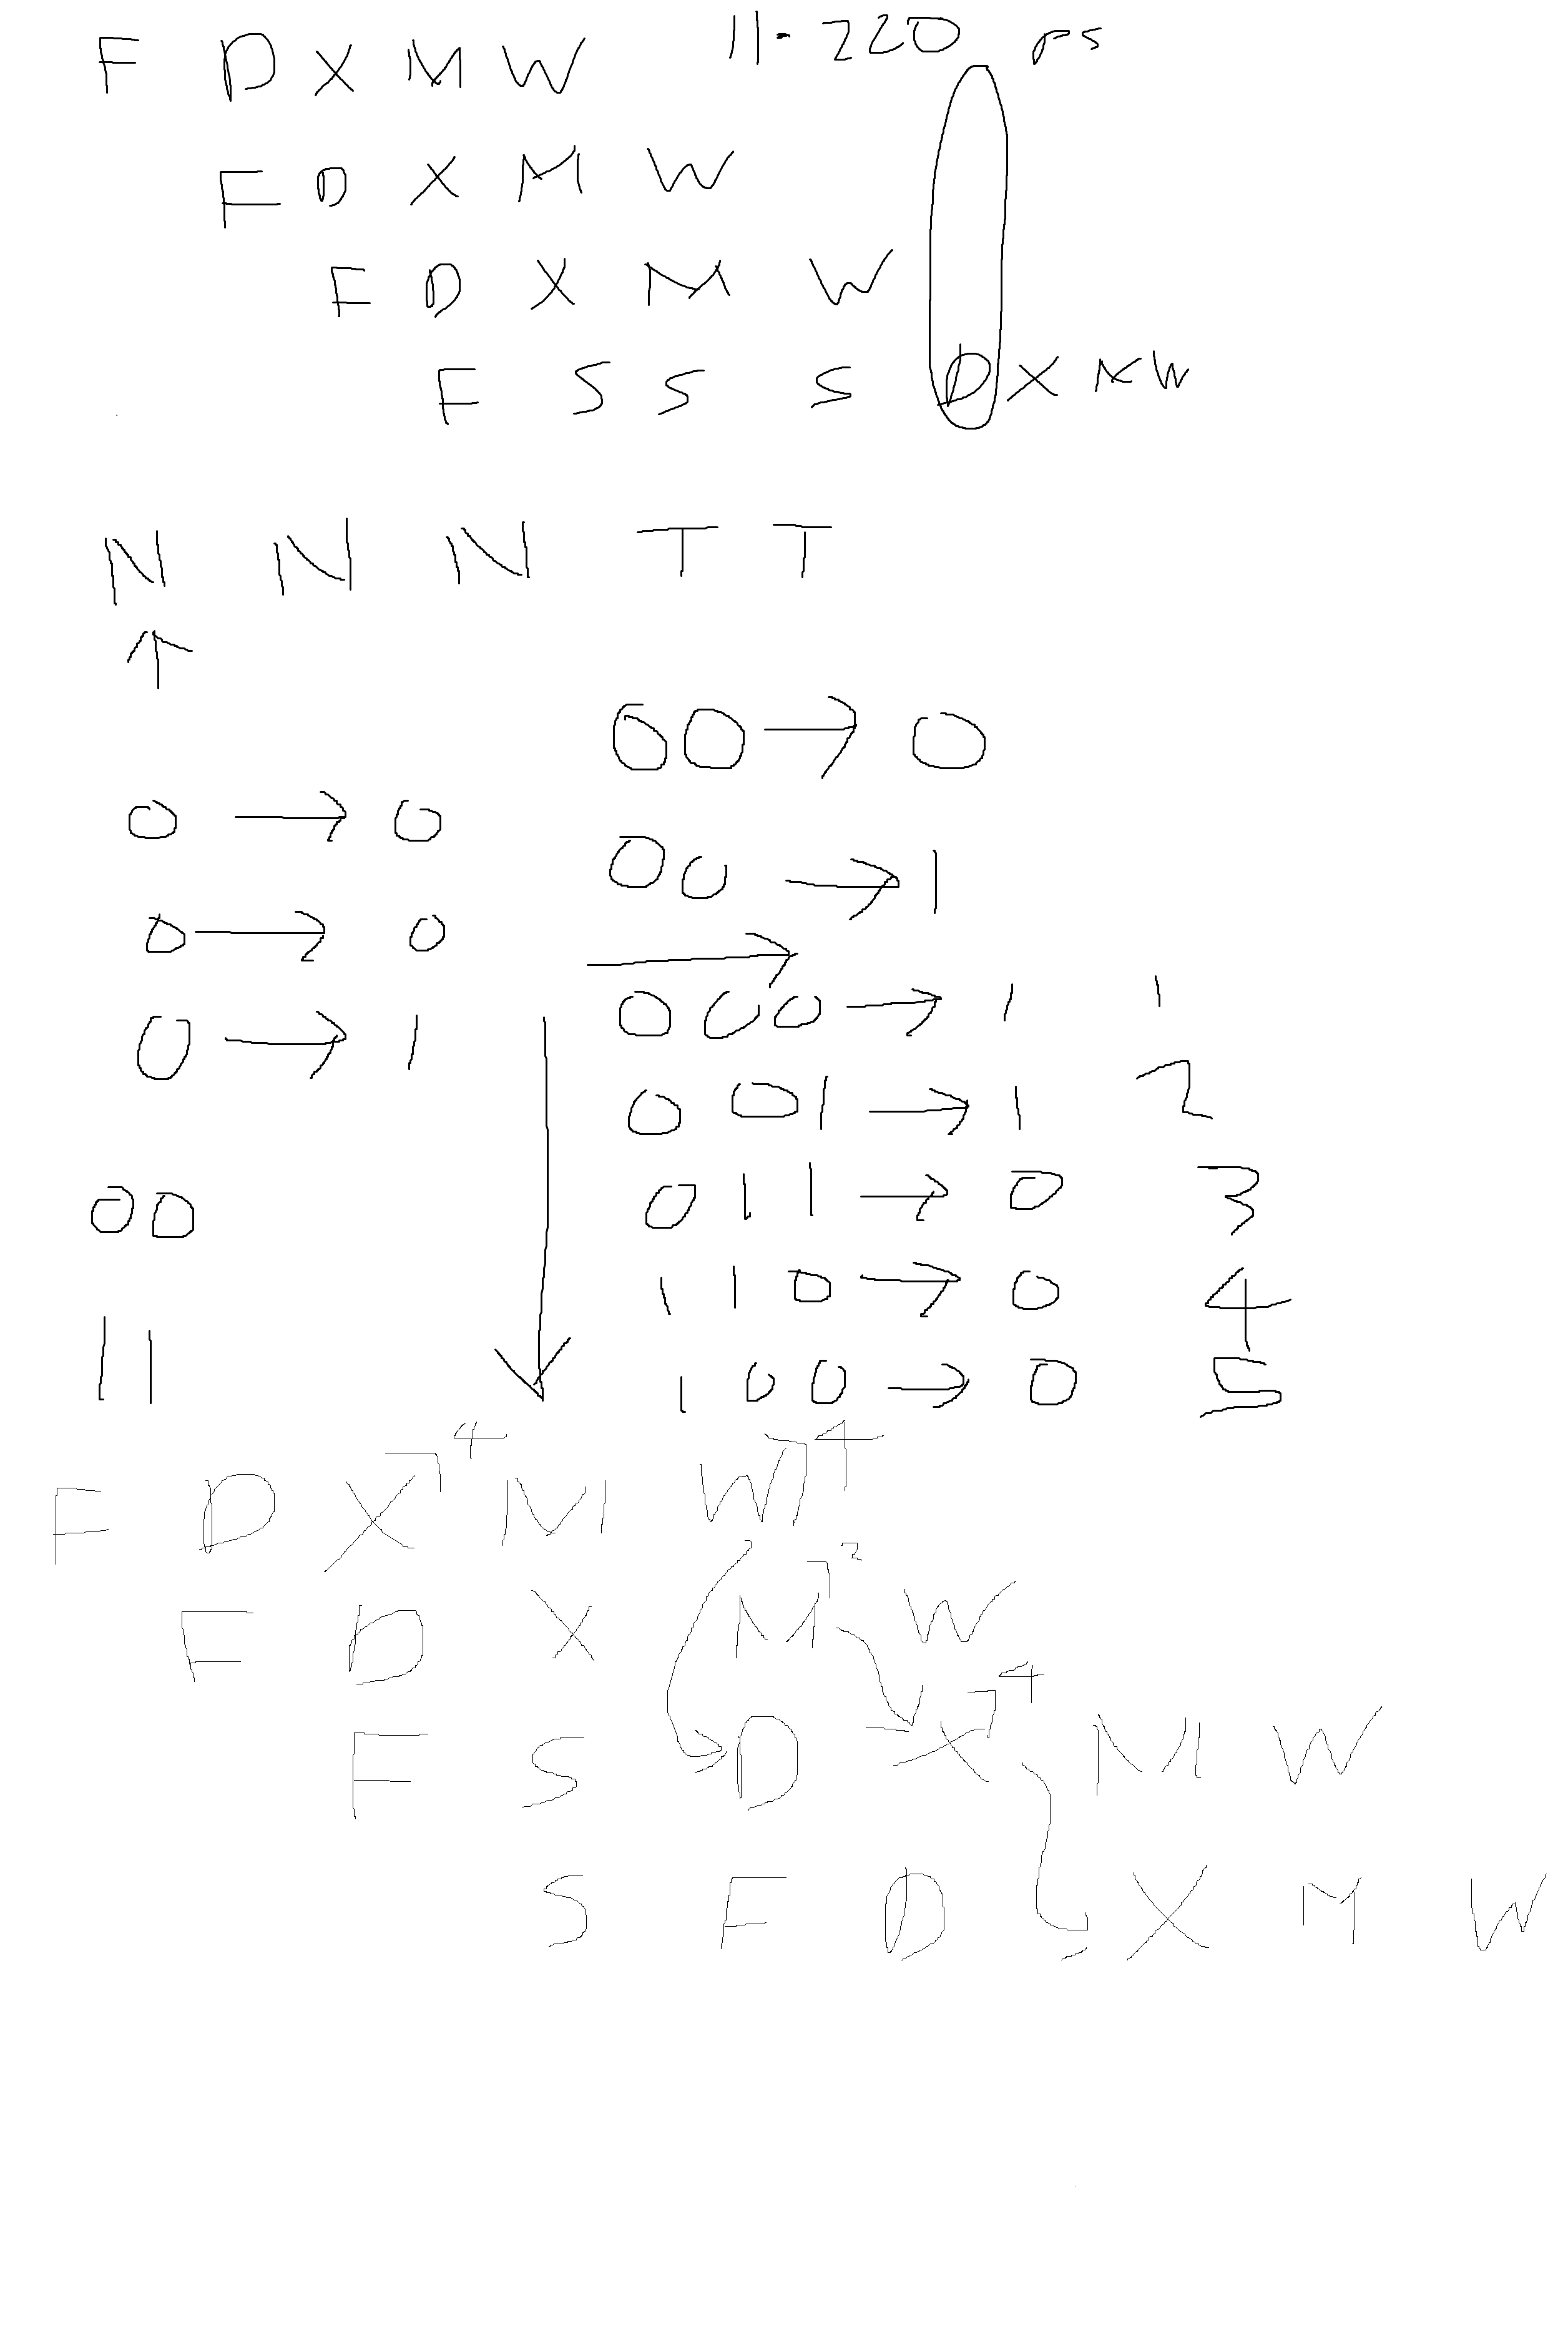 F D X M W 11 - 220 ps
F D X M W
F D X M W
F S S S D X M W
N N N T T
↑
00 → 0
0 → 0
00 → 1
0 → 0
→
000 → 1 1
0 → 1
001 → 1 2
00
011 → 0 3
110 → 0 4
11
100 → 0 5
F D X ㄱ4 M W ㄱ4
F D X M ㄱ2 W
F S D X ㄱ4 M W
S F D X M W